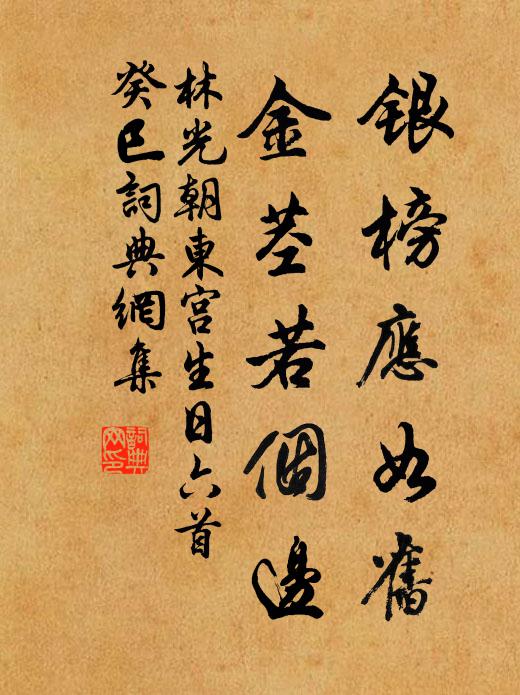 銀榜應如舊
金莖若個邊
林光朝東宮生日六首
癸巳詞典網集
詞典網印